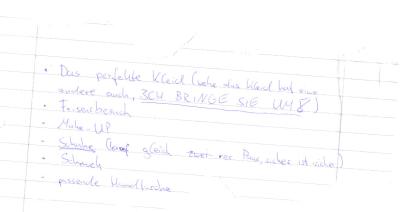 • Das perfekte Kleid (wehe das Kleid hat eine
andere auch, ICH BRINGE SIE UM!)
• Friseurbesuch
- Make-UP
- Schuhe (lieber gleich zwei Paar, sicher ist sicher)
- Schmuck
- passende Handtasche